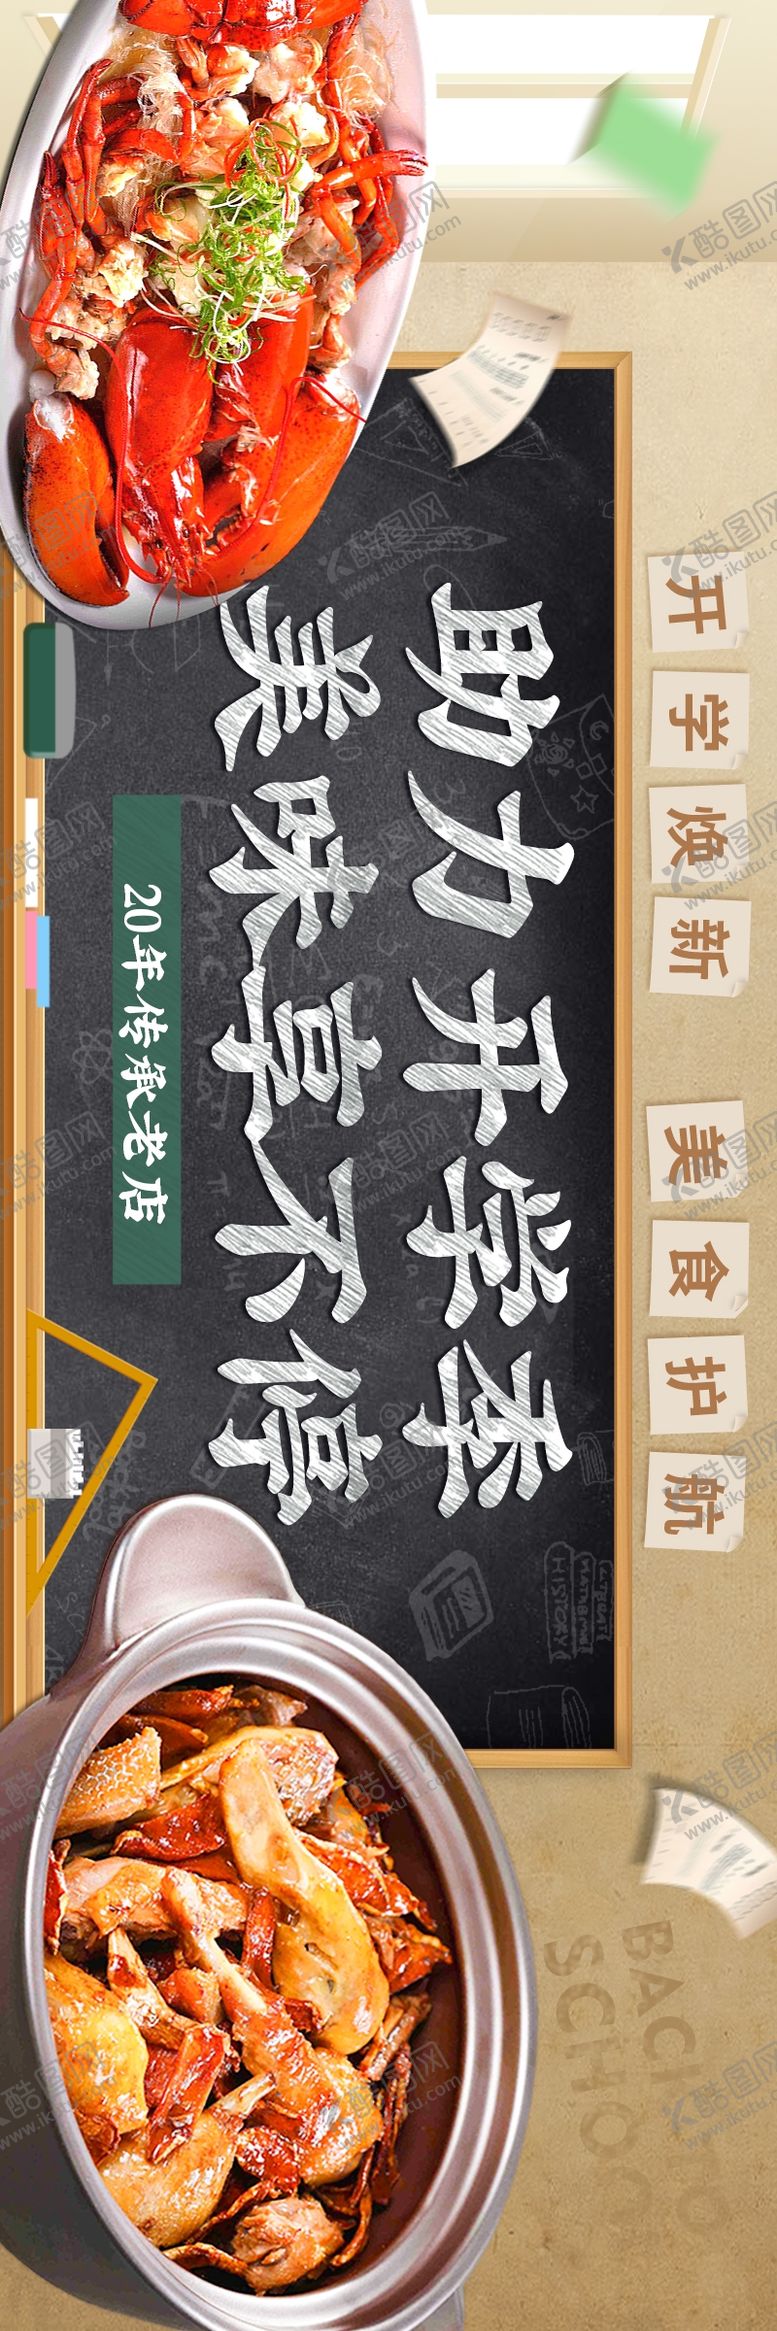 开学焕新 美食护航
助力开学季
美味享不停
20年传承老店
BACK TO
SCHOOL
HISTORY
酷图网
www.ikutu.com